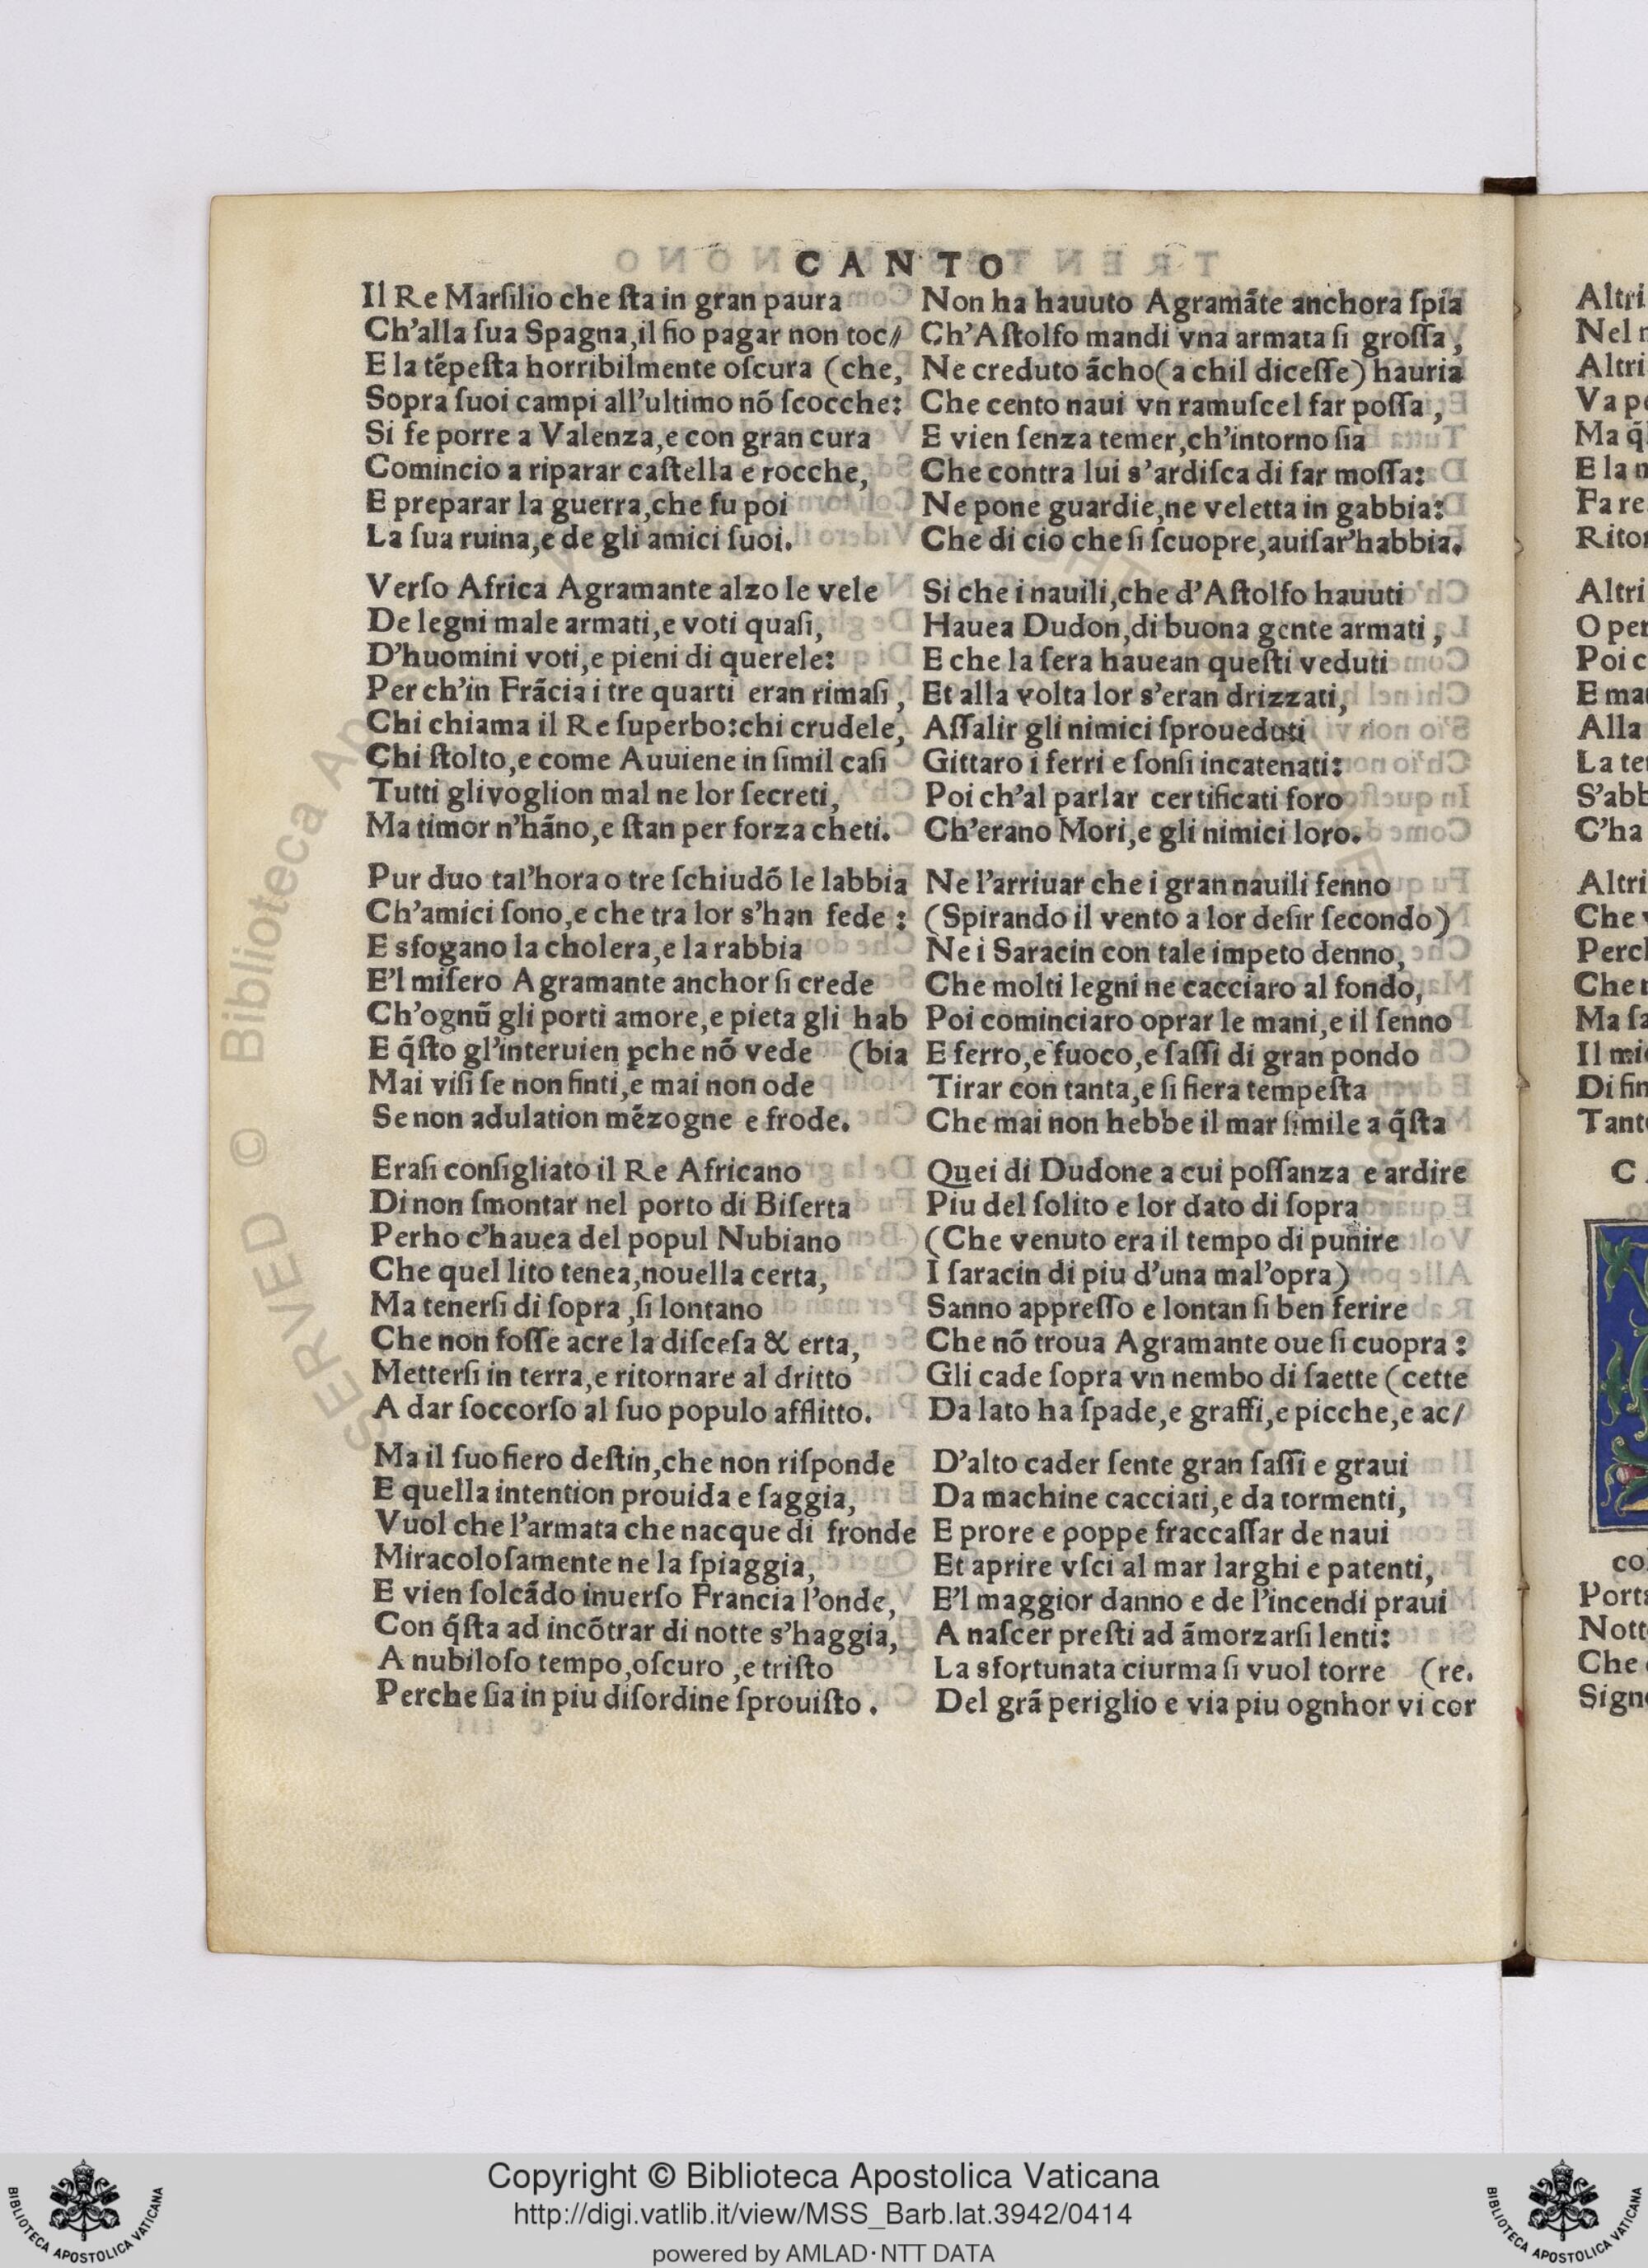 CANTO
Il Re Marſilio che ſta in gran paura
Ch'alla ſua Spagna,il fio pagar non toc//
E la tẽpeſta horribilmente oſcura (che,
Sopra ſuoi campi all'ultimo nõ ſcocche:
Si fe porre a Valenza,e con gran cura
Comincio a riparar caſtella e rocche,
E preparar la guerra,che fu poi
La ſua ruina,e de gli amici ſuoi.
Verſo Africa Agramante alzo le vele
De legni male armati,e voti quaſi,
D'huomini voti,e pieni di querele:
Per ch'in Frãcia i tre quarti eran rimaſi,
Chi chiama il Re ſuperbo:chi crudele,
Chi ſtolto,e come Auuiene in ſimil caſi
Tutti gli voglion mal ne lor ſecreti,
Ma timor n'hãno,e ſtan per forza cheti.
Pur duo tal'hora o tre ſchiudõ le labbia
Ch'amici ſono,e che tra lor s'han fede:
E sfogano la cholera,e la rabbia
E'l miſero Agramante anchor ſi crede
Ch'ognũ gli porti amore,e pieta gli hab
E q̃ſto gl'interuien ꝑche nõ vede (bia
Mai viſi ſe non finti,e mai non ode
Se non adulation mẽzogne e frode.
Eraſi conſigliato il Re Africano
Di non ſmontar nel porto di Biſerta
Perho c'hauea del popul Nubiano
Che quel lito tenea,nouella certa,
Ma tenerſi di ſopra,ſi lontano
Che non foſſe acre la diſceſa & erta,
Metterſi in terra,e ritornare al dritto
A dar ſoccorſo al ſuo populo afflitto.
Ma il ſuo fiero deſtin,che non riſponde
E quella intention prouida e ſaggia,
Vuol che l'armata che nacque di fronde
Miracoloſamente ne la ſpiaggia,
E vien ſolcãdo inuerſo Francia l'onde,
Con q̃ſta ad incõtrar di notte s'haggia,
A nubiloſo tempo,oſcuro,e triſto
Perche ſia in piu diſordine ſprouiſto.
Non ha hauuto Agramãte anchora ſpia
Ch'Aſtolfo mandi vna armata ſi groſſa,
Ne creduto ãcho(a chil diceſſe) hauria
Che cento naui vn ramuſcel far poſſa,
E vien ſenza temer,ch'intorno ſia
Che contra lui s'ardiſca di far moſſa:
Ne pone guardie,ne veletta in gabbia:
Che di cio che ſi ſcuopre,auiſar'habbia.
Si che i nauili,che d'Aſtolfo hauuti
Hauea Dudon,di buona gente armati,
E che la ſera hauean queſti veduti
Et alla volta lor s'eran drizzati,
Aſſalir gli nimici ſproueduti
Gittaro i ferri e ſonſi incatenati:
Poi ch'al parlar certificati foro
Ch'erano Mori,e gli nimici loro.
Ne l'arriuar che i gran nauili fenno
(Spirando il vento a lor deſir ſecondo)
Ne i Saracin con tale impeto denno,
Che molti legni ne cacciaro al fondo,
Poi cominciaro oprar le mani,e il ſenno
E ferro,e fuoco,e ſaſſi di gran pondo
Tirar con tanta,e ſi fiera tempeſta
Che mai non hebbe il mar ſimile a q̃ſta
Quei di Dudone a cui poſſanza e ardire
Piu del ſolito e lor dato di ſopra
(Che venuto era il tempo di punire
I ſaracin di piu d'una mal'opra)
Sanno appreſſo e lontan ſi ben ferire
Che nõ troua Agramante oue ſi cuopra:
Gli cade ſopra vn nembo di ſaette (cette
Da lato ha ſpade,e graffi,e picche,e ac/
D'alto cader ſente gran ſaſſi e graui
Da machine cacciati,e da tormenti,
E prore e poppe fraccaſſar de naui
Et aprire vſci al mar larghi e patenti,
E'l maggior danno e de l'incendi praui
A naſcer preſti ad ãmorzarſi lenti:
La sfortunata ciurma ſi vuol torre (re.
Del grã periglio e via piu ognhor vi cor
Altri
Nel
Altri
Ma
E la
Fa re
Altri
O per
Poi c
E
Alla
La te
S'abb
C'ha
Altri
Che
Perc
Che
Ma ſa
Il
Di fin
Tant
C
co
Port
Nott
Che
Sign
SERVED © Biblioteca Ap
Copyright © Biblioteca Apostolica Vaticana
http://digi.vatlib.it/view/MSS_Barb.lat.3942/0414
powered by AMLAD·NTT DATA
BIBLIOTECA APOSTOLICA VATICANA
BIBLIOTECA APOSTOLICA VATICANA